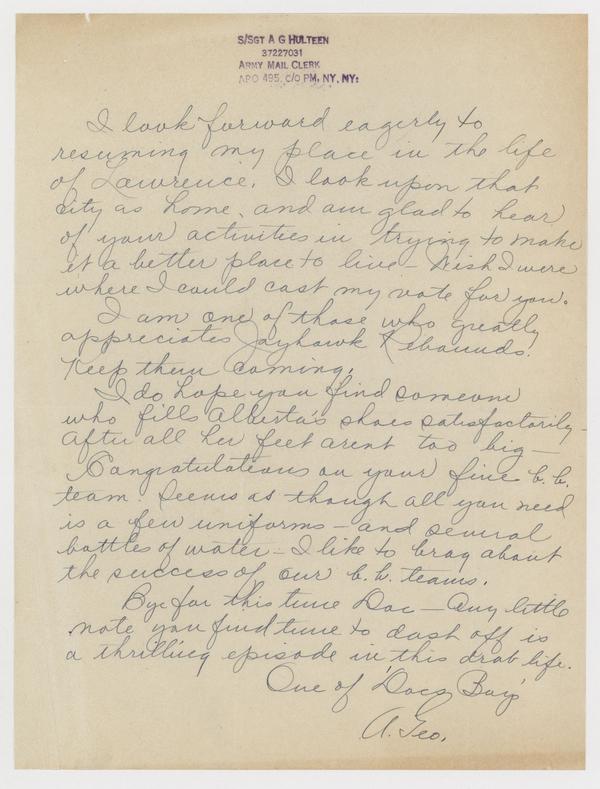 S/SGT A G HULTEEN
37227031
ARMY MAIL CLERK
APO 495, C/O PM, NY, NY:
I look forward eagerly to
resuming my place in the life
of Lawrence. I look upon that
city as home, and am glad to hear
of your activities in trying to make
it a better place to live - Wish I were
where I could cast my vote for you.
I am one of those who greatly
appreciates Jayhawk Rebounds.
Keep them coming.
I do hope you find someone
who fills Alberta's shoes satisfactorily -
after all her feet arent too big -
Congratulations on your fine b.b.
team. Seems as though all you need
is a few uniforms - and several
bottles of water - I like to brag about
the success of our b.b. teams.
Bye for this time Doc - Any little
note you find time to dash off is
a thrilling episode in this drab life.
One of 'Docs Boys'
A. Geo.